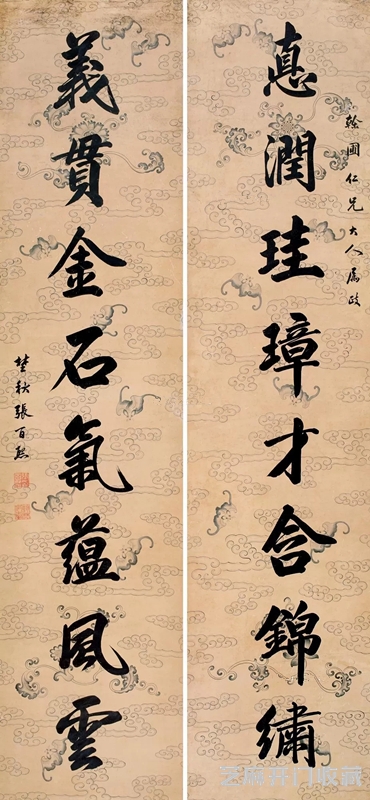 翰圃仁兄大人属政
悳潤珪璋才合錦繡
義貫金石氣蘊風雲
埜秋張百熙
芝麻开门收藏